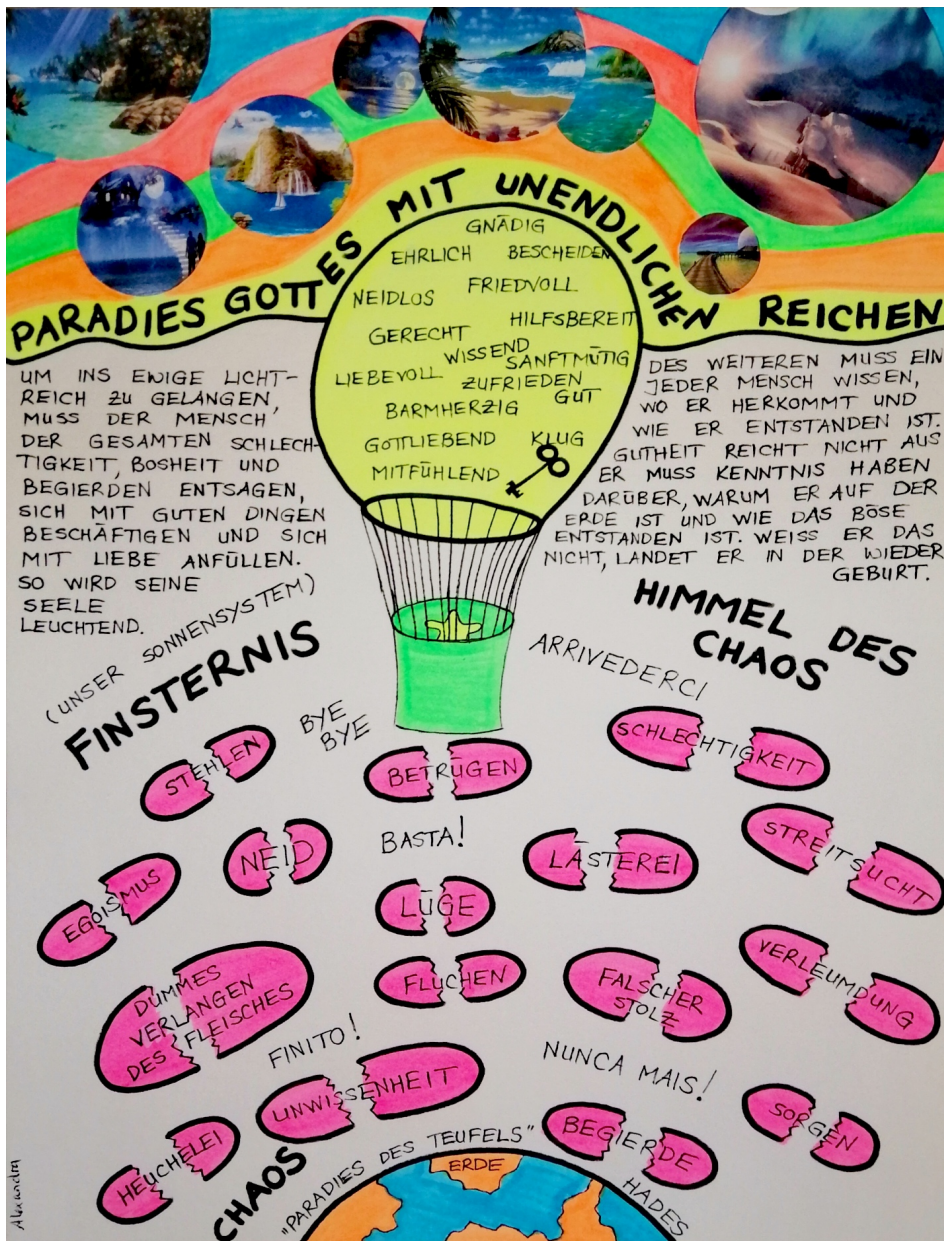 PARADIES GOTTES MIT UNENDLICHEN REICHEN
GNÄDIG
EHRLICH BESCHEIDEN
NEIDLOS FRIEDVOLL
GERECHT HILFSBEREIT
WISSEND SANFTMÜTIG
LIEBEVOLL ZUFRIEDEN
GUT
BARMHERZIG
GOTTLIEBEND KLUG
MITFÜHLEND
UM INS EWIGE LICHT-
REICH ZU GELANGEN,
MUSS DER MENSCH
DER GESAMTEN SCHLECH-
TIGKEIT, BOSHEIT UND
BEGIERDEN ENTSAGEN,
SICH MIT GUTEN DINGEN
BESCHÄFTIGEN UND SICH
MIT LIEBE ANFÜLLEN.
SO WIRD SEINE
SEELE
LEUCHTEND.
DES WEITEREN MUSS EIN
JEDER MENSCH WISSEN,
WO ER HERKOMMT UND
WIE ER ENTSTANDEN IST.
GUTHEIT REICHT NICHT AUS
ER MUSS KENNTNIS HABEN
DARÜBER, WARUM ER AUF DER
ERDE IST UND WIE DAS BÖSE
ENTSTANDEN IST. WEISS ER DAS
NICHT, LANDET ER IN DER WIEDER
GEBURT.
(UNSER SONNENSYSTEM)
FINSTERNIS
HIMMEL DES
CHAOS
ARRIVEDERCI
BYE
BYE
STEHLEN
BETRÜGEN
SCHLECHTIGKEIT
NEID
BASTA!
LÄSTEREI
STREITSUCHT
EGOISMUS
LÜGE
DUMMES
VERLANGEN
DES FLEISCHES
FLUCHEN
FALSCHER
STOLZ
VERLEUMDUNG
FINITO!
NUNCA MAIS!
UNWISSENHEIT
HEUCHELEI
BEGIERDE
SORGEN
CHAOS
"PARADIES DES TEUFELS"
HADES
ERDE
Alexandra